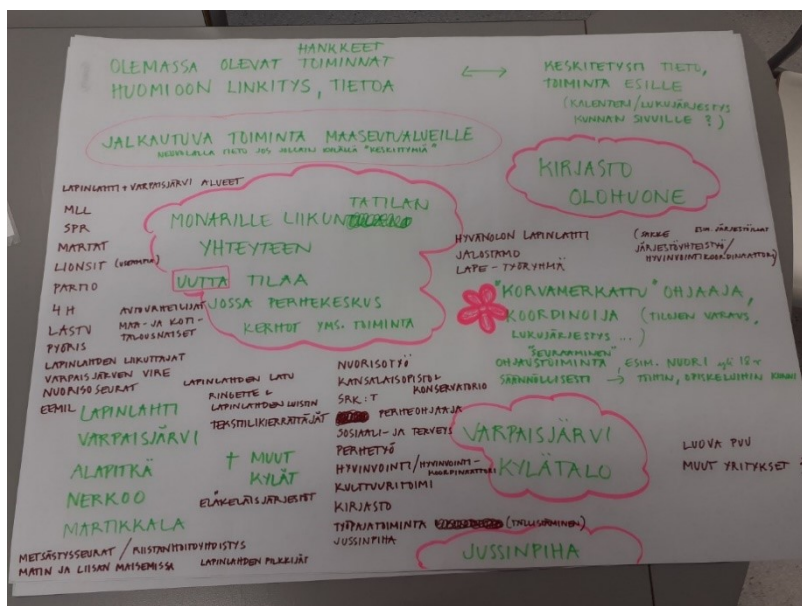 HANKKEET
OLEMASSA OLEVAT TOIMINNAT
HUOMIOON LINKITYS, TIETOA
KESKITETYSTI TIETO,
TOIMINTA ESILLE
(KALENTERI/LUKUJÄRJESTYS
KUNNAN SIVUILLE ?)
JALKAUTUVA TOIMINTA MAASEUTUALUEILLE
NEUVOLALLA TIETO JOS JOLLAIN KYLÄLLÄ "KESKITTYMIÄ"
KIRJASTO
OLOHUONE
LAPINLAHTI + VARPAISJÄRVI ALUEET
MLL
SPR
MARTAT
LIONSIT
PARTIO
4H
LASTU
PYÖRIS
LAPINLAHDEN LIIKUTTAJAT
VARPAISJÄRVEN VIRE
NUORISOSEURAT
EEMIL
AUTOURHEILIJAT
MAA- JA KOTI-
TALOUSNAISET
MONARILLE LIIKUNTATILAN
YHTEYTEEN
UUTTA TILAA
JOSSA PERHEKESKUS
KERHOT YMS. TOIMINTA
HYVÄNOLON LAPINLAHTI
JALOSTAMO
LAPE-TYÖRYHMÄ
ESIM. JÄRJESTÖILLAT
JÄRJESTÖYHTEISTYÖ/
HYVINVOINTIKOORDINAATTORI)
"KORVAMERKATTU" OHJAAJA,
KOORDINOIJA (TILOJEN VARAUS,
LUKUJÄRJESTYS ...)
"SEURAAMINEN"
OHJAUSTOIMINTA, ESIM. NUORI yli 18 v
SÄÄNNÖLLISESTI → TÖIHIN, OPISKELUIHIN KIINNI
LAPINLAHDEN LATU
RINGETTE &
LAPINLAHDEN LUISTIN
TEKSTIILIKIERRÄTTÄJÄT
NUORISOTYÖ
KANSALAISOPISTO &
KONSERVATORIO
SRK:T
PERHEOHJAAJA
SOSIAALI- JA TERVEYS
PERHETYÖ
HYVINVOINTI/HYVINVOINTI-
KOORDINAATTORI
KULTTUURITOIMI
KIRJASTO
TYÖPAJATOIMINTA
JUSSINPIHA
LAPINLAHTI
VARPAISJÄRVI
ALAPITKÄ
NERKOO
MARTIKKALA
+ MUUT
KYLÄT
ELÄKELÄISJÄRJESTÖT
METSÄSTYSSEURAT / RIISTANHOITOYHDISTYS
MATIN JA LIISAN MAISEMISSA
LAPINLAHDEN PILKKIJÄT
VARPAISJÄRVI
KYLÄTALO
JUSSINPIHA
LUOVA PUU
MUUT YRITYKSET ?